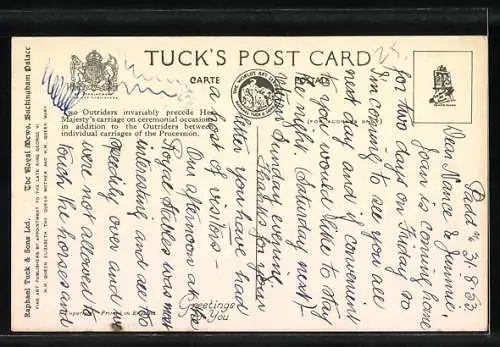 TUCK'S POST CARD
CARTE POSTALE
Two Outriders invariably precede Her
Majesty's carriage on ceremonial occasions
in addition to the Outriders between
individual carriages of the Procession.
(FOR ADDRESS ONLY)
Raphael Tuck & Sons Ltd. The Royal Mews, Buckingham Palace
FINE ART PUBLISHERS BY APPOINTMENT TO THE LATE KING GEORGE VI
H.M. QUEEN ELIZABETH THE QUEEN MOTHER AND H.M. QUEEN MARY
Greetings
You
31.8.53
Dear Nance & Jimmie,
Joan is coming home
for two days on Friday so
I'm coming to see you
next day and if convenient
to you would like to stay
the night. Saturday next)
Sunday evening.
Thanks for your
letter you have had
a host of visitors -
Our afternoon at the
Royal Stables was very
interesting and all too
speedily over and we
were not allowed to
touch the horses and